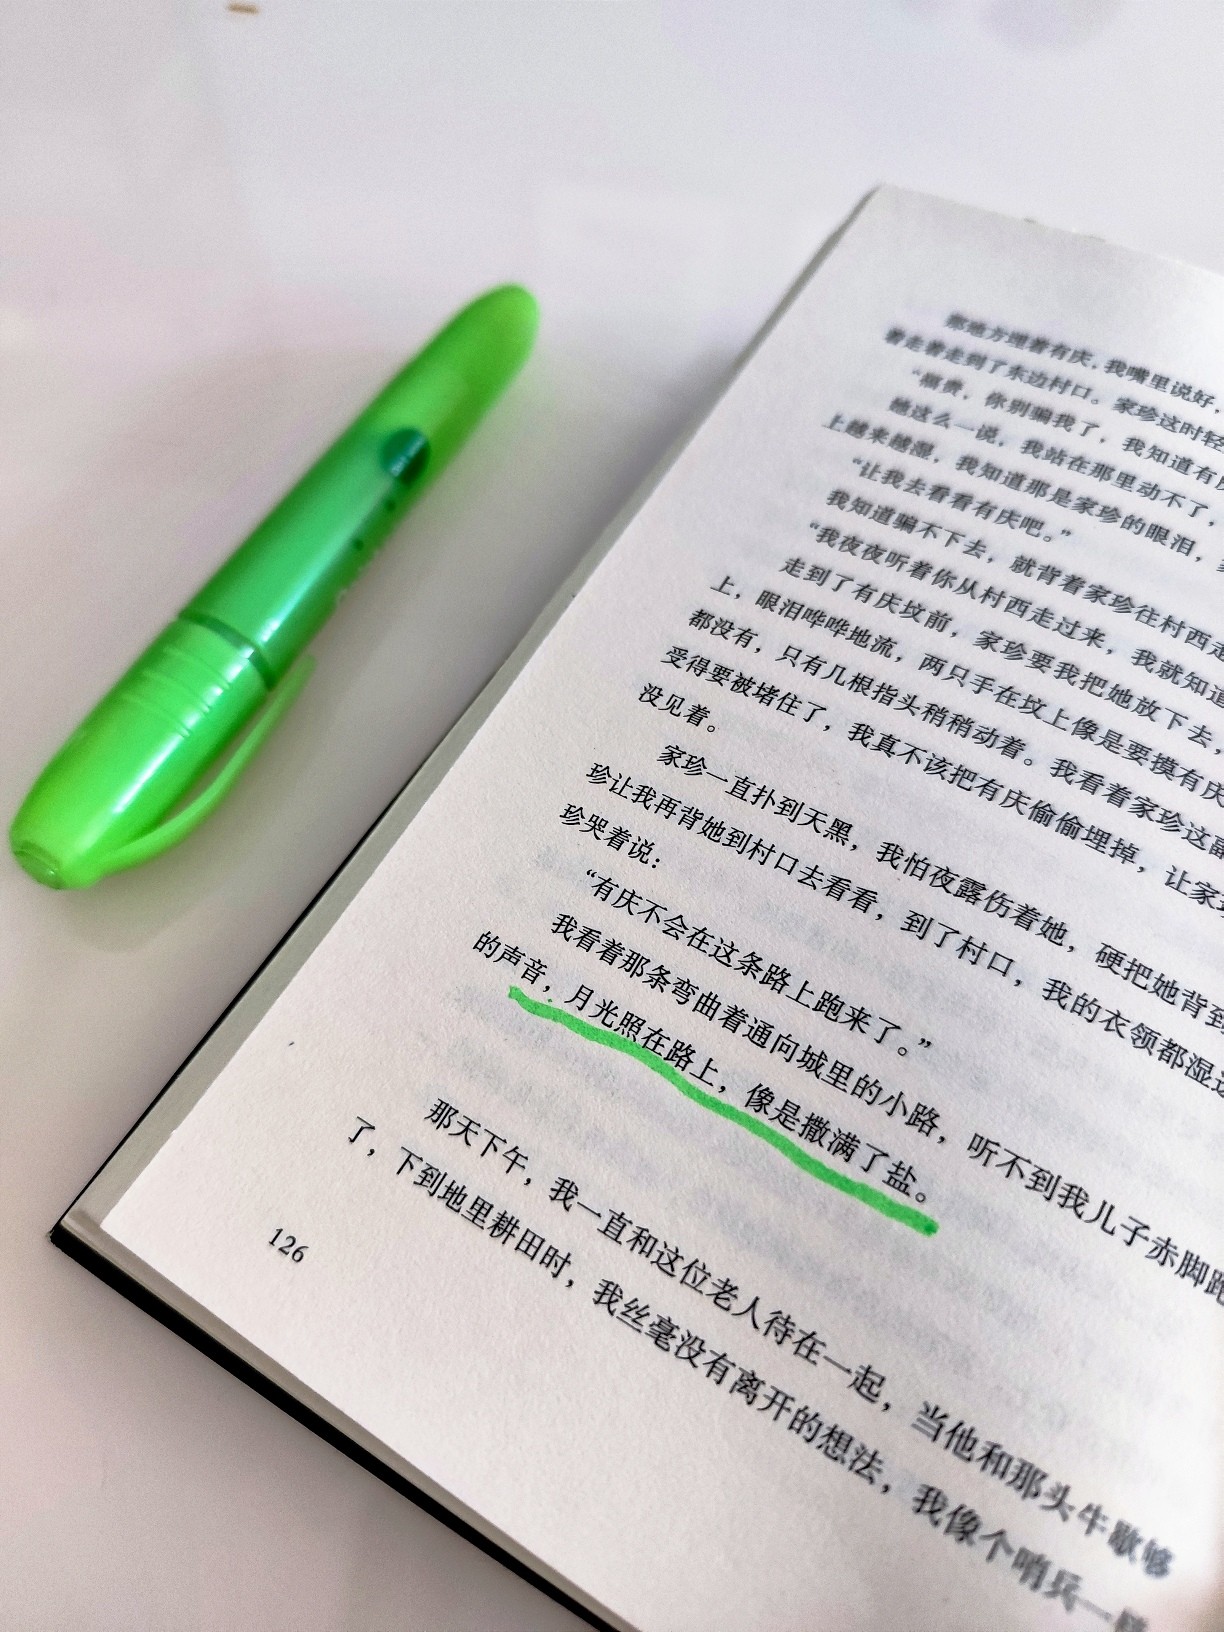 那地方埋着有庆，我嘴里说好，
着走着走到了东边村口。家珍这时轻
“福贵，你别骗我了，我知道有庆
她这么一说，我站在那里动不了，
上越来越湿，我知道那是家珍的眼泪，
“让我去看看有庆吧。”
我知道骗不下去，就背着家珍往村西走
“我夜夜听着你从村西走过来，我就知道
走到了有庆坟前，家珍要我把她放下去，
上，眼泪哗哗地流，两只手在坟上像是要摸有庆
都没有，只有几根指头稍稍动着。我看着家珍这副
受得要被堵住了，我真不该把有庆偷偷埋掉，让家珍
没见着。
家珍一直扑到天黑，我怕夜露伤着她，硬把她背到
珍让我再背她到村口去看看，到了村口，我的衣领都湿透
珍哭着说：
“有庆不会在这条路上跑来了。”
我看着那条弯曲着通向城里的小路，听不到我儿子赤脚跑
的声音，月光照在路上，像是撒满了盐。
那天下午，我一直和这位老人待在一起，当他和那头牛歇够
了，下到地里耕田时，我丝毫没有离开的想法，我像个哨兵一样
126